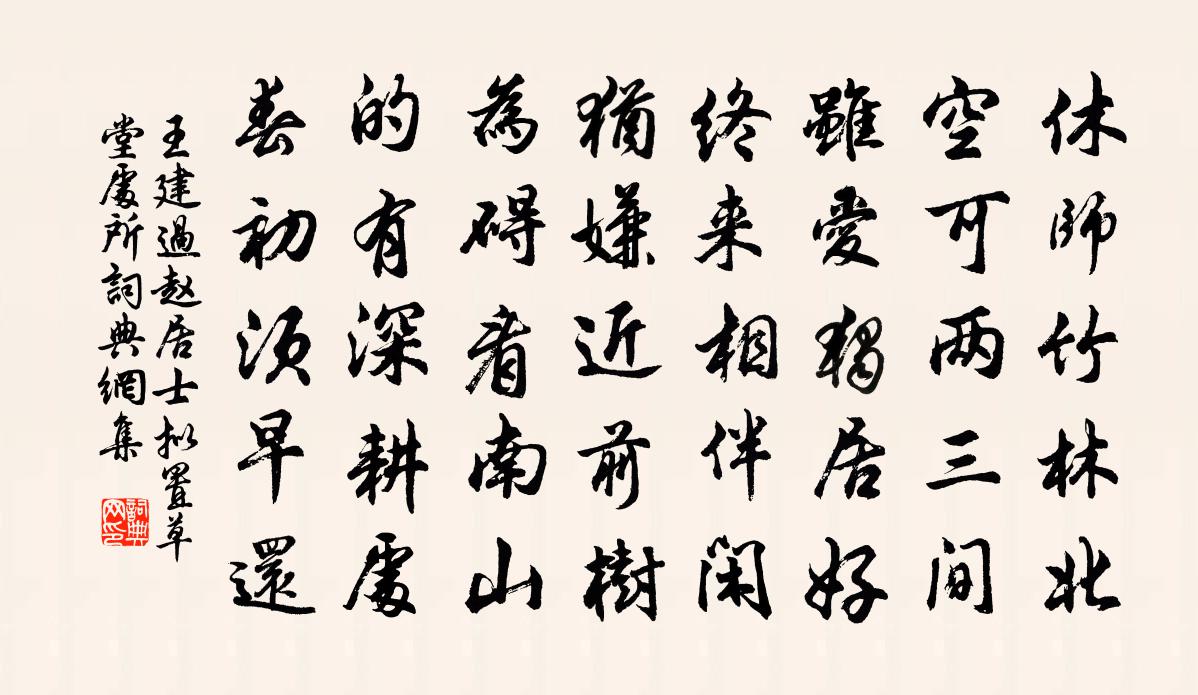 休師竹林北
空可两三间
雖愛獨居好
终来相伴闲
猶嫌近前樹
為碍看南山
的有深耕處
春初须早還
王建過赵居士拟置草
堂處所詞典網集
詞典
网印